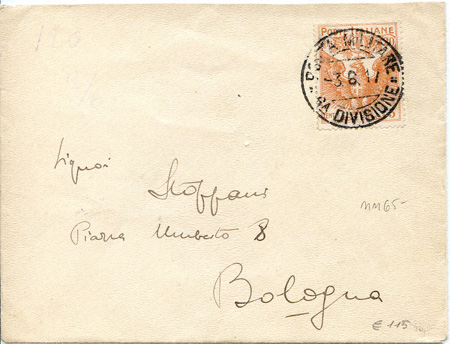 POSTE ITALIANE
POSTA MILITARE
-3.6.17
6A DIVISIONE
Signori
Stoffani
Piazza Umberto 8
MM65-
Bologna
€ 115